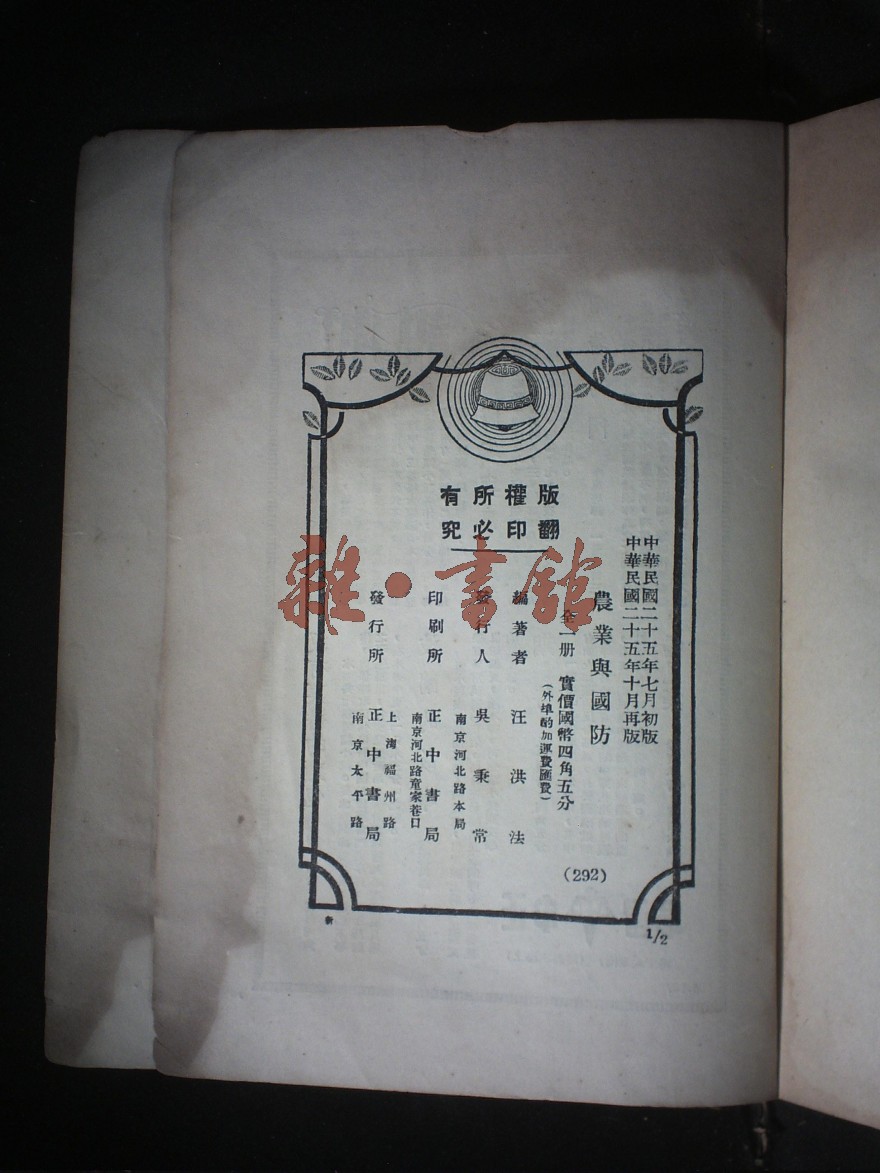 版權所有
翻印必究
中華民國二十五年七月初版
中華民國二十五年十月再版
農業與國防
全一册 實價國幣四角五分
(外埠酌加運費匯費)
編著者 汪洪法
發行人 吳秉常
南京河北路本局
印刷所 正中書局
南京河北路童家巷口
發行所 正中書局
上海福州路
南京太平路
(292)
1/2
雜·書館